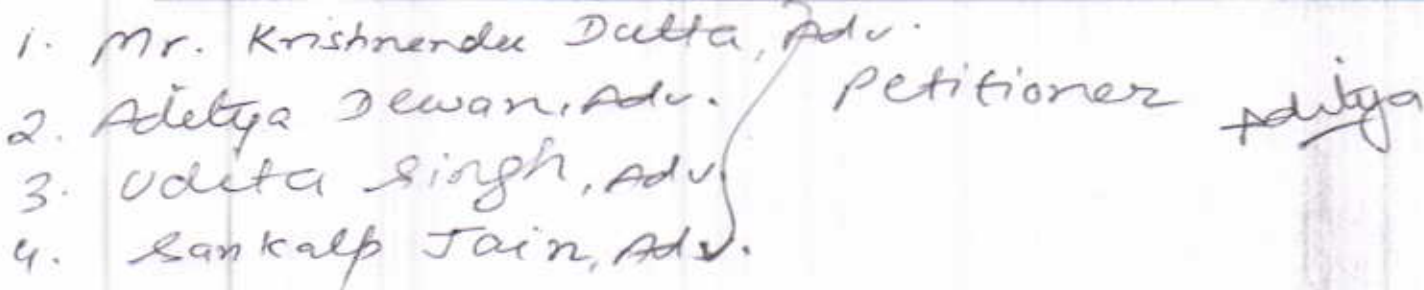 1. Mr. Krishnendu Datta, Adv.
2. Aditya Dewan, Adv. Petitioner Aditya
3. Udita Singh, Adv.
4. Sankalp Jain, Adv.